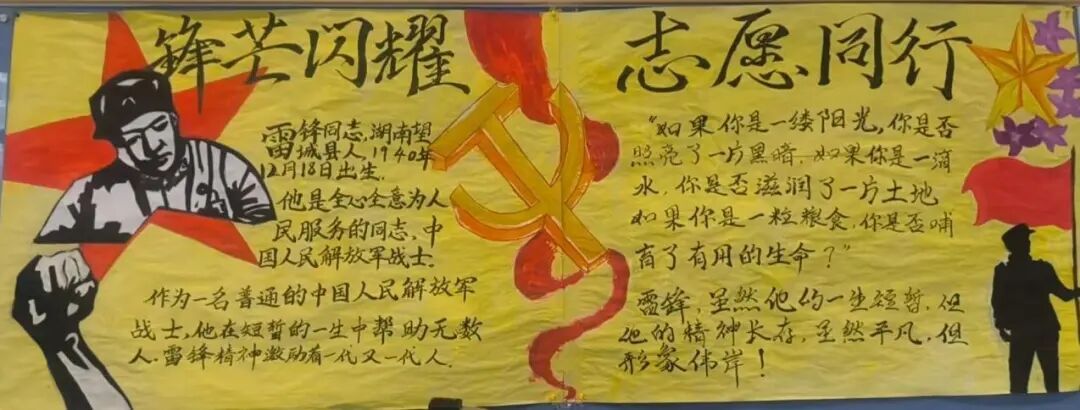 锋芒闪耀
雷锋同志,湖南望
城县人,1940年
12月18日出生.
他是全心全意为人
民服务的同志,中
国人民解放军战士.
作为一名普通的中国人民解放军
战士,他在短暂的一生中帮助无数
人.雷锋精神激励着一代又一代人.
志愿同行
"如果你是一缕阳光,你是否
照亮了一片黑暗.如果你是一滴
水,你是否滋润了一片土地
如果你是一粒粮食,你是否哺
育了有用的生命?"
雷锋,虽然他的一生短暂,但
他的精神长存,虽然平凡,但
形象伟岸!